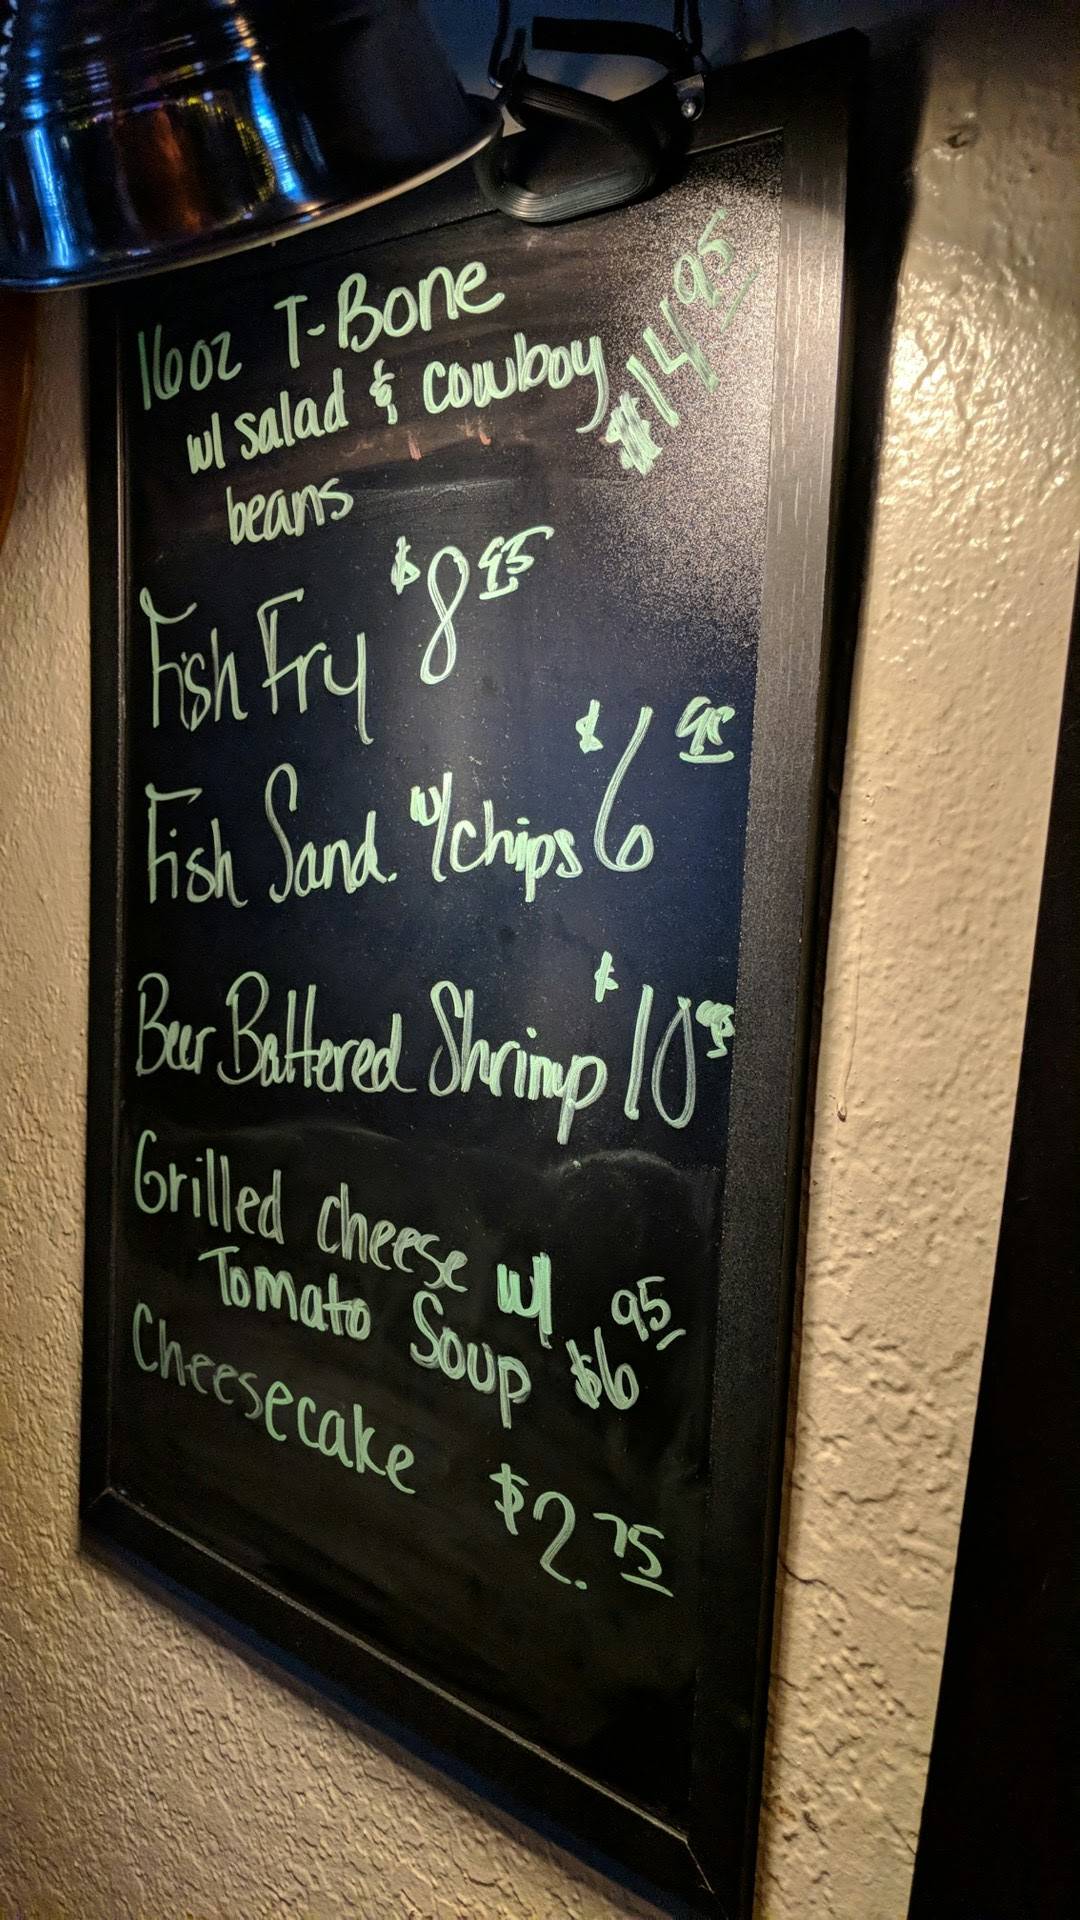 16oz T-Bone
w/ salad & cowboy $14.95
beans
Fish Fry $8.95
Fish Sand. w/chips $6.95
Beer Battered Shrimp $10.95
Grilled cheese w/
Tomato Soup $6.95
Cheesecake $2.75